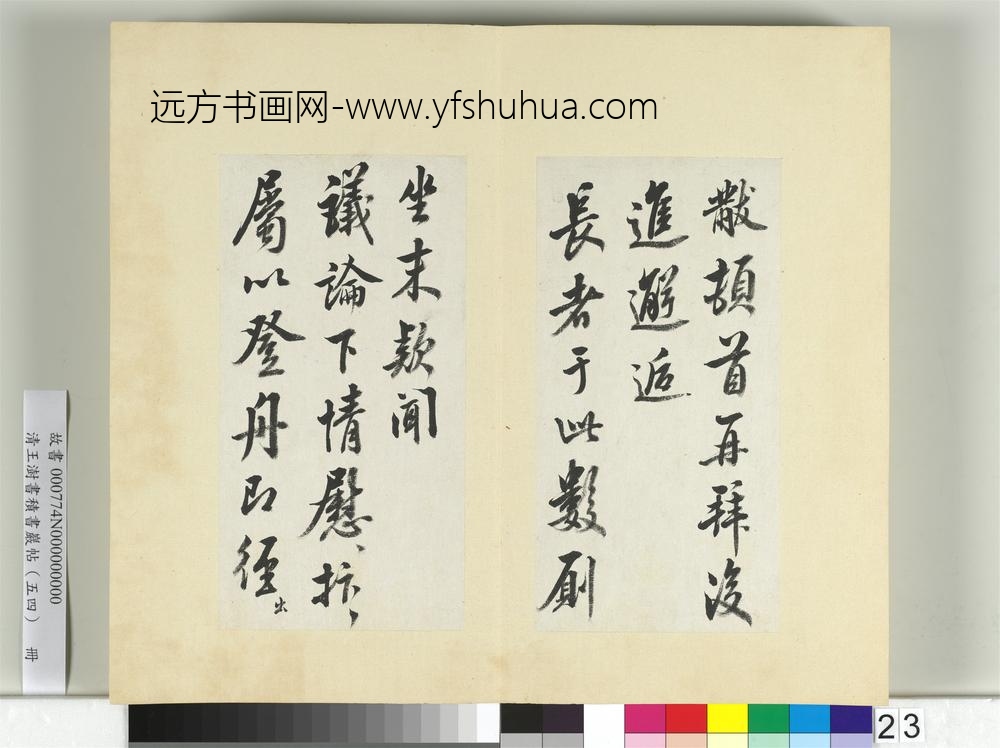 远方书画网-www.yfshuhua.com
黻頓首再拜後
進邂逅
長者于此數廁
坐末款聞
議論下情慰、抃、
屬以登舟即徑出
故書 000774N000000000
清王澍書積書巖帖(五四) 冊
23